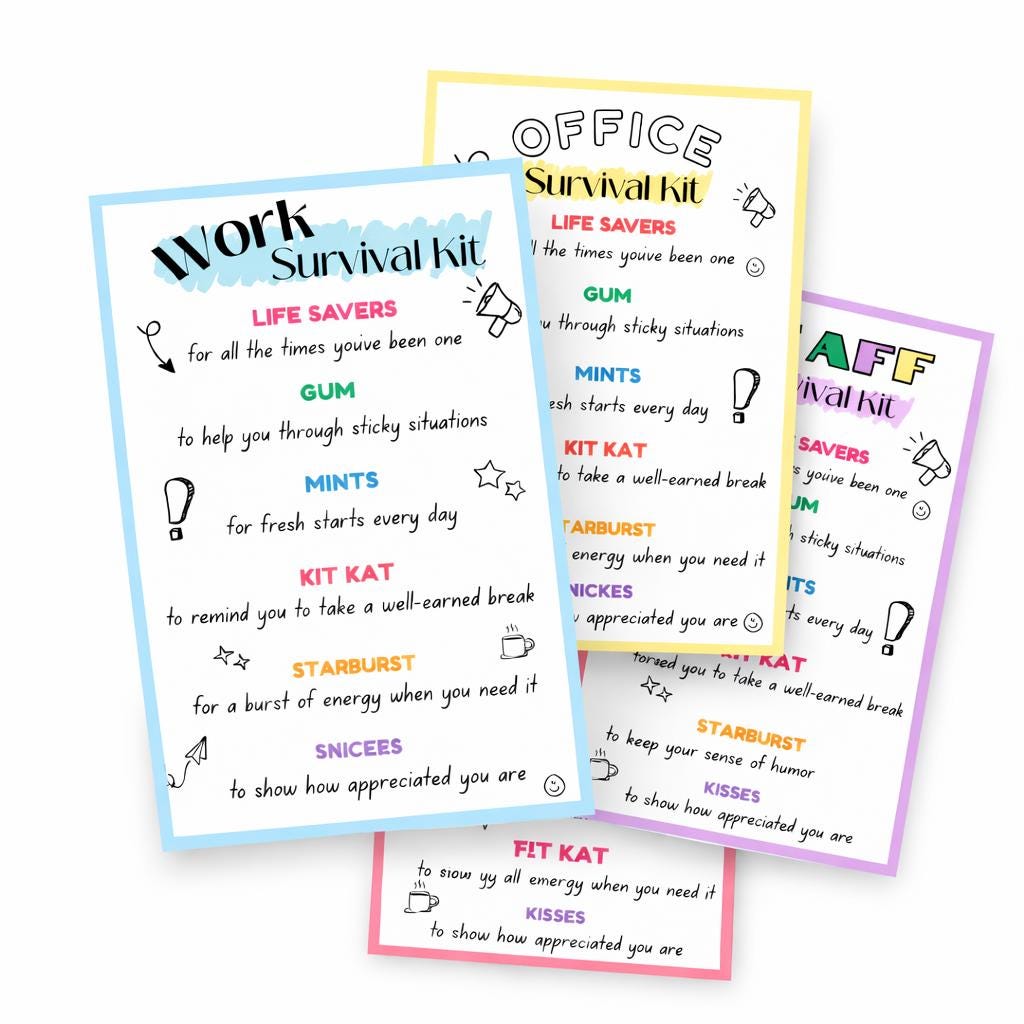 Work
Survival Kit
LIFE SAVERS
for all the times youive been one
GUM
to help you through sticky situations
MINTS
for fresh starts every day
KIT KAT
to remind you to take a well-earned break
STARBURST
for a burst of energy when you need it
SNICEES
to show how appreciated you are
OFFICE
Survival Kit
LIFE SAVERS
the times youive been one
GUM
through sticky situations
MINTS
starts every day
KIT KAT
to take a well-earned break
TARBURST
energy when you need it
NICKES
appreciated you are
AFF
vival Kit
SAVERS
youive been one
UM
sticky situations
TS
every day
KAT
you to take a well-earned break
STARBURST
to keep your sense of humor
KISSES
to show how appreciated you are
FIT KAT
to siow yy all emergy when you need it
KISSES
to show how appreciated you are